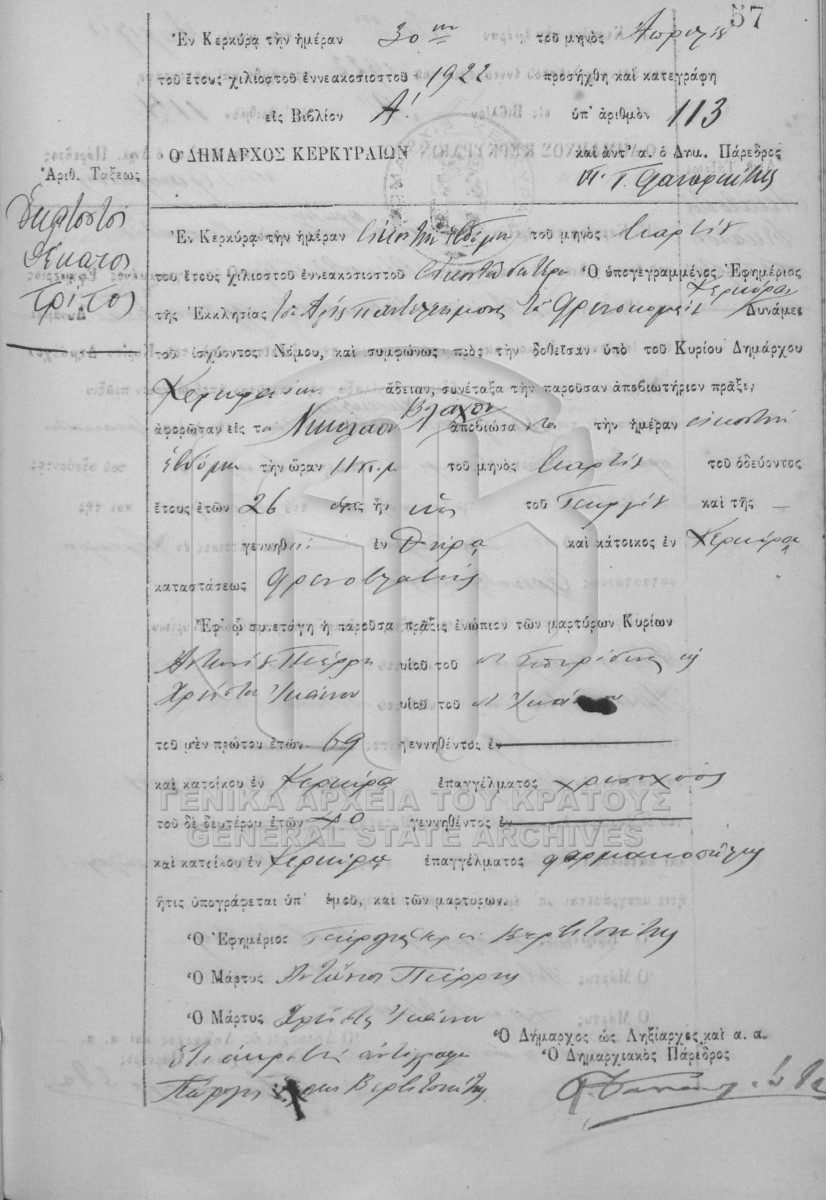 57
Ἐν Κερκύρᾳ τὴν ἡμέραν 30ην τοῦ μηνὸς Ἀπριλίου
τοῦ ἔτους χιλιοστοῦ ἐννεακοσιοστοῦ 1922 προσήχθη καὶ κατεγράφη
εἰς Βιβλίον Α! ὑπ' ἀριθμὸν 113
Ὁ ΔΗΜΑΡΧΟΣ ΚΕΡΚΥΡΑΙΩΝ καὶ ἀντ' α. ὁ Δημ. Πάρεδρος
Ἀριθ. Τάξεως
Ἑκατοστός
δέκατος
τρίτος
Ἐν Κερκύρᾳ τὴν ἡμέραν εἰκοστὴν ἑβδόμην τοῦ μηνὸς Μαρτίου
τοῦ ἔτους χιλιοστοῦ ἐννεακοσιοστοῦ εἰκοστοῦ δευτέρου Ὁ ὑπογεγραμμένος Ἐφημέριος
τῆς Ἐκκλησίας τοῦ Ἁγίου Παντελεήμονος τοῦ Φρενοκομείου Κερκύρας Δυνάμει
τοῦ ἰσχύοντος Νόμου, καὶ συμφώνως πρὸς τὴν δοθεῖσαν ὑπὸ τοῦ Κυρίου Δημάρχου
Κερκυραίων ἄδειαν, συνέταξα τὴν παροῦσαν ἀποβιωτήριον πρᾶξιν,
ἀφορῶσαν εἰς τὸν Νικόλαον Βλάχον ἀποβιώσαντα τὴν ἡμέραν εἰκοστὴν
ἑβδόμην τὴν ὥραν 11 π.μ τοῦ μηνὸς Μαρτίου τοῦ ὁδεύοντος
ἔτους ἐτῶν 26 ὅστις ἦν υἱὸς τοῦ Γεωργίου καὶ τῆς —
γεννηθεὶς ἐν Θήρᾳ καὶ κάτοικος ἐν Κερκύρᾳ
καταστάσεως φρενοβλαβής
Ἐφ' ᾧ συνετάγη ἡ παροῦσα πρᾶξις ἐνώπιον τῶν μαρτύρων Κυρίων
Ἀντωνίου Πιέρρη υἱοῦ τοῦ Σπυρίδωνος καὶ
Χρήστου υἱοῦ τοῦ
τοῦ μὲν πρώτου ἐτῶν 69 γεννηθέντος ἐν
καὶ κατοίκου ἐν Κερκύρᾳ ἐπαγγέλματος χρυσοχόος
τοῦ δὲ δευτέρου ἐτῶν 40 γεννηθέντος ἐν
καὶ κατοίκου ἐν Κερκύρᾳ ἐπαγγέλματος φαρμακοποιός
ἥτις ὑπογράφεται ὑπ' ἐμοῦ, καὶ τῶν μαρτύρων.
Ὁ Ἐφημέριος Γεώργιος
Ὁ Μάρτυς Ἀντώνιος Πιέρρης
Ὁ Μάρτυς Χρῆστος
Ὁ Δήμαρχος ὡς Ληξίαρχος καὶ α. α.
Ὁ Δημαρχιακὸς Πάρεδρος
ΓΕΝΙΚΑ ΑΡΧΕΙΑ ΤΟΥ ΚΡΑΤΟΥΣ
GENERAL STATE ARCHIVES